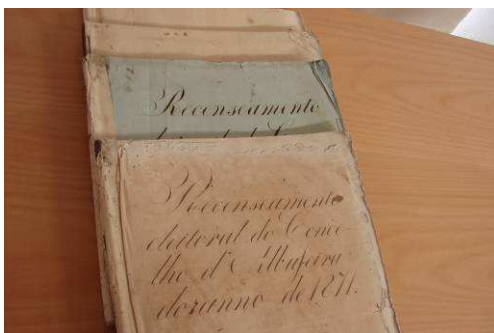 Recenseamento
Recenseamento
eleitoral do Conce-
lho d'Albufeira
do anno de 1871.